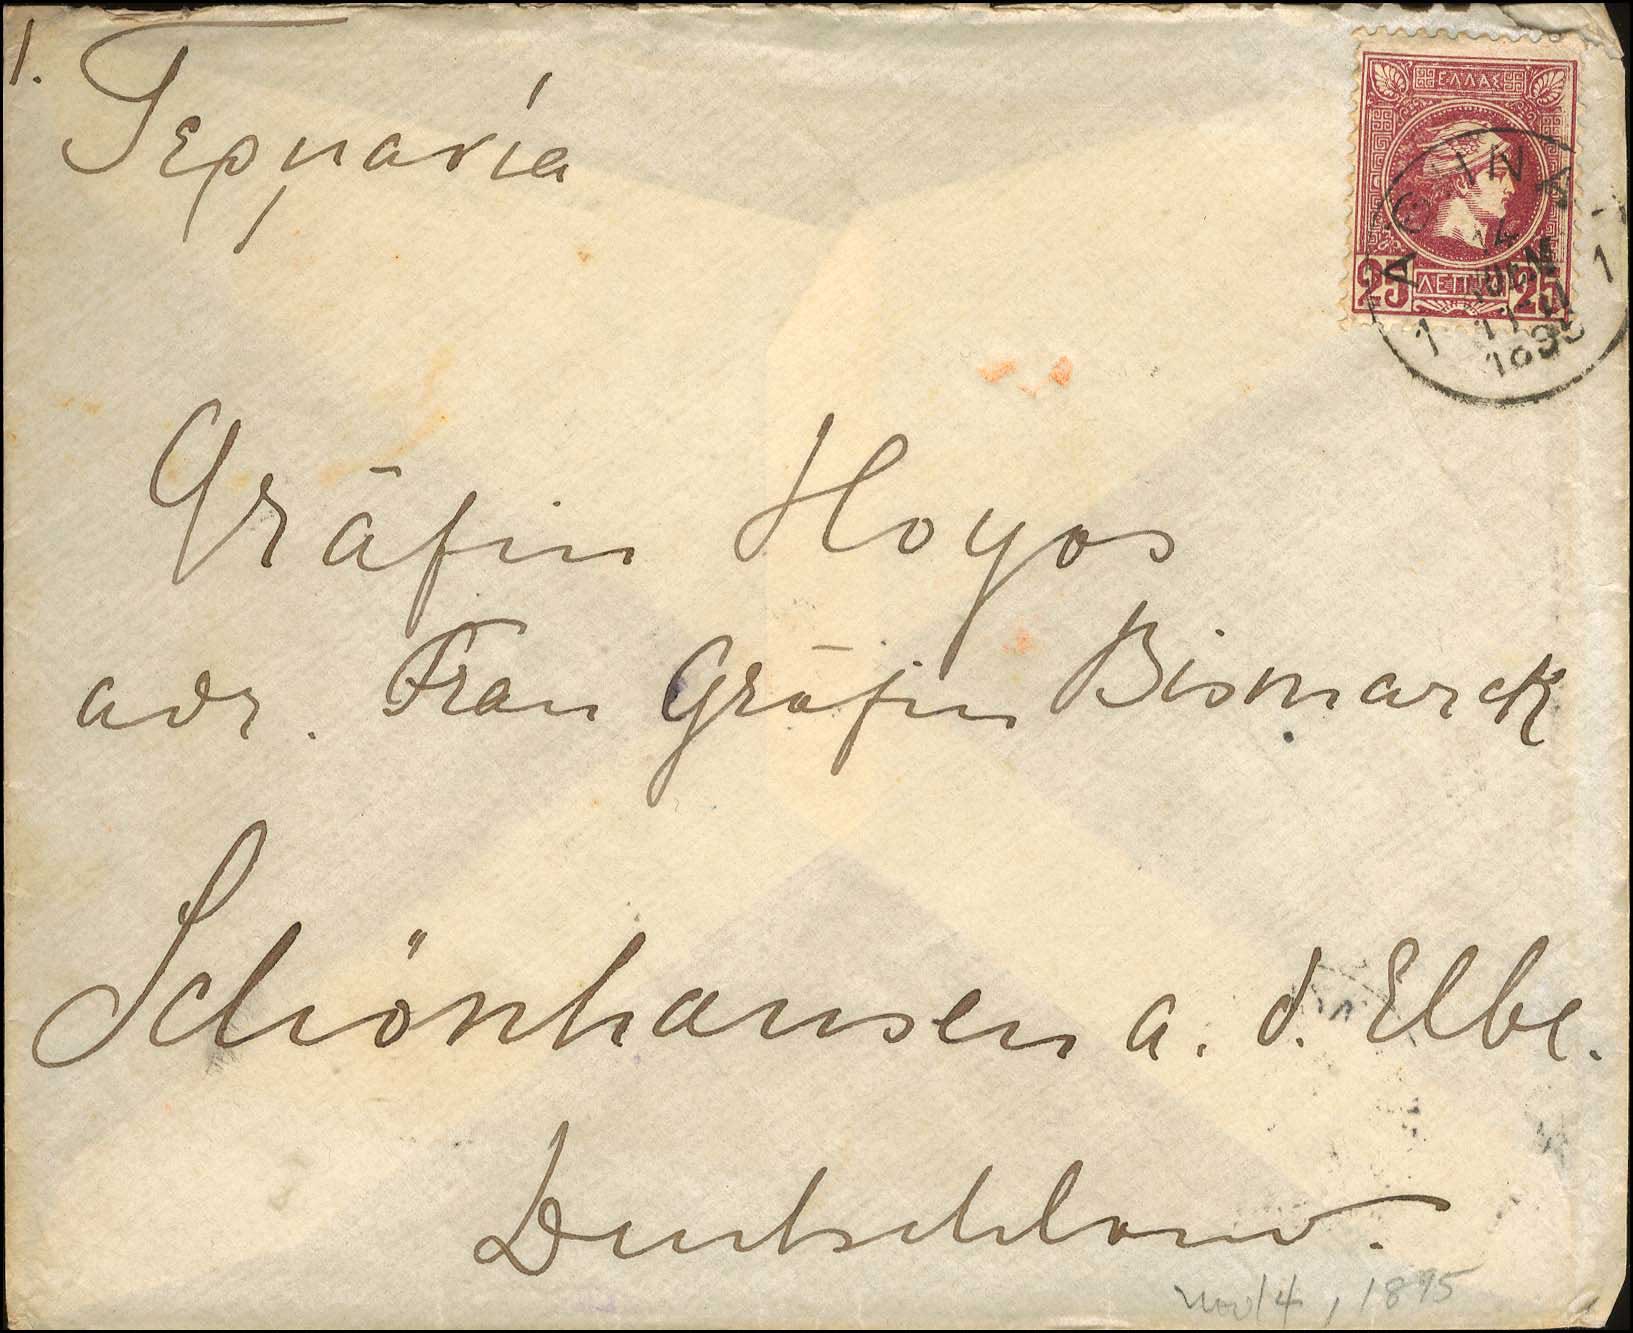 1.
Γερμανία
ΕΛΛΑΣ
25 ΛΕΠΤΑ 25
ΑΘΗΝΑΙ
1 1
14
1895
Gräfin Hoyos
adr. Frau Gräfin Bismarck
Schönhausen a. d. Elbe.
Deutschland.
nov 14, 1895